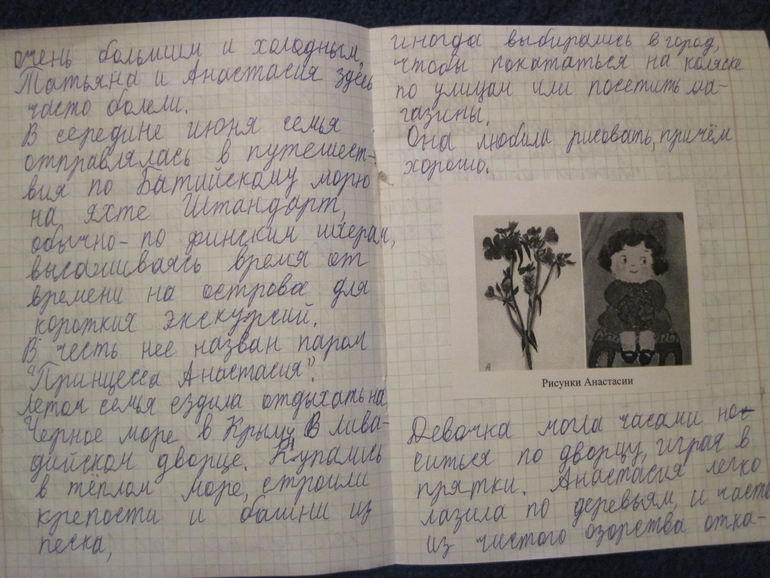 очень большим и холодным,
Татьяна и Анастасия здесь
часто болели.
В середине июня семья
отправлялась в путешест-
вия по Батийскому морю
на яхте Штандарт,
обычно - по финским шхерам,
высаживаясь время от
времени на острова для
коротких экскурсий.
В честь нее назван паром
"Принцесса Анастасия".
Летом семья ездила отдыхать на
Черное море в Крыму, в Лива-
дийском дворце. Купались
в тёплом море, строили
крепости и башни из
песка,
иногда выбирались в город,
чтобы покататься на коляске
по улицам или посетить ма-
газины.
Она любила рисовать, причём
хорошо.
А
Рисунки Анастасии
Девочка могла часами но-
ситься по дворцу, играя в
прятки. Анастасия легко
лазила по деревьям, и часто
из чистого озорства отка-